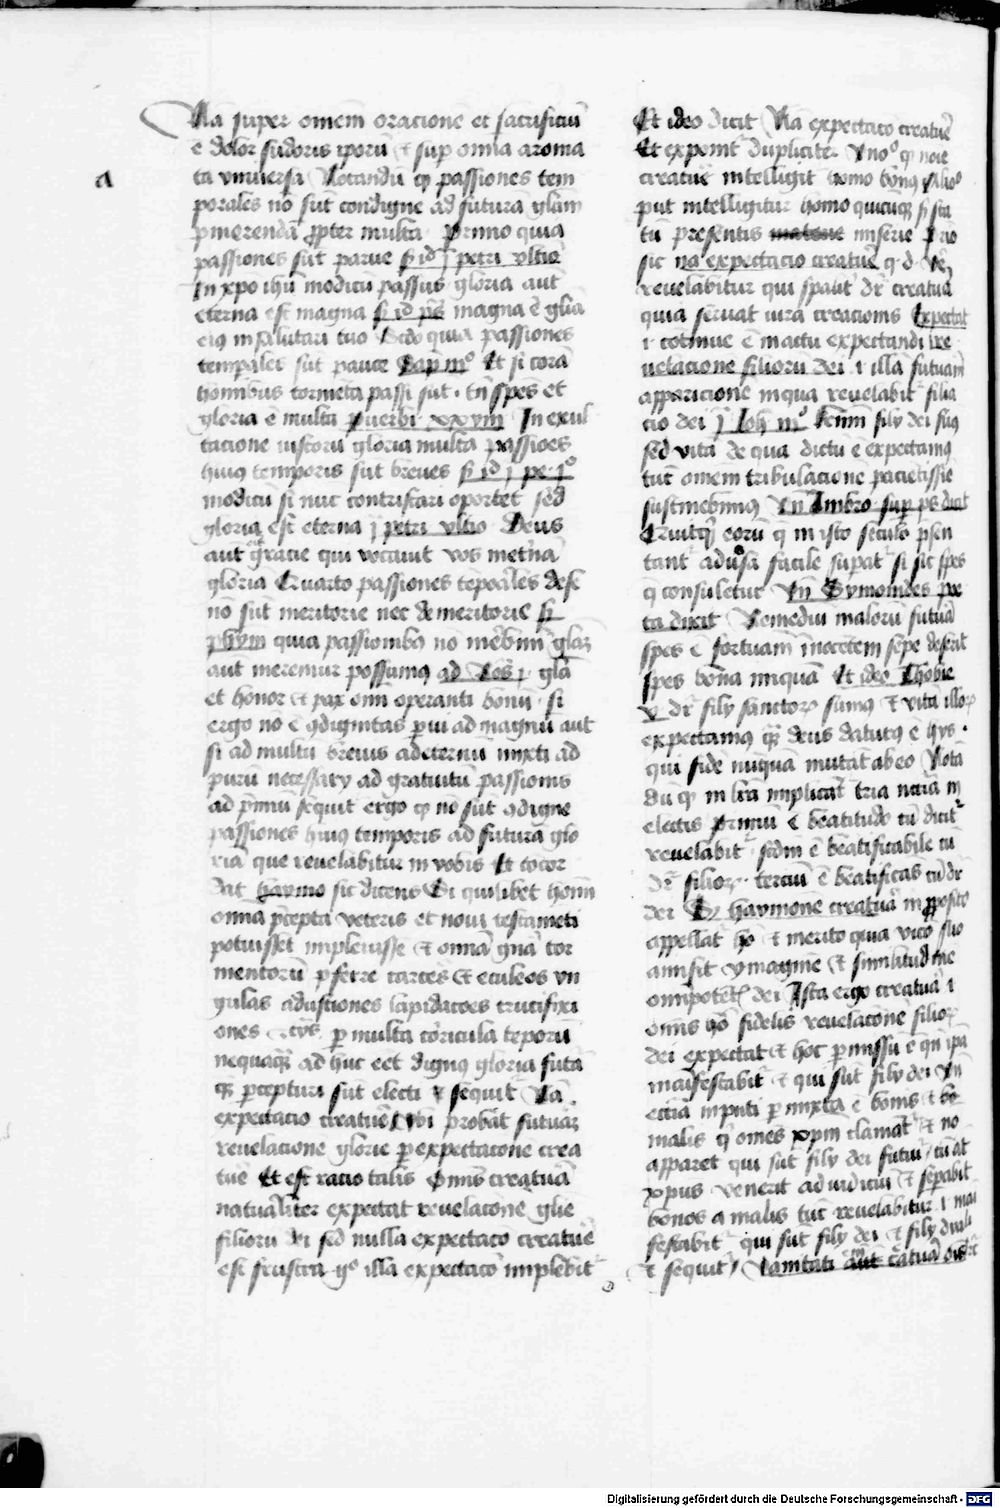 Na super omem oracione et sacrificiu
e dolor sudoris iporu et sup omnia aroma
a
ta vniuersa Notandu q passiones tem
porales no sut condigne ad futura glam
pmerenda ppter multa Primo quia
passiones sut parue ß id j petri vltio
In xpo ihu modicu passus gloria aut
eterna est magna ß id ps magna e glia
eius in salutari tuo Scdo quia passiones
tempales sut pauce Sap iiio Et si cora
hominibus tormeta passi sut tn spes et
gloria e multa puerbi xxviii In exul
tacione iustoru gloria multa passioes
huius temporis sut breues ß id j pe jo
modicu si nuc contristari oportet sed
gloria est eterna j petri vltio Deus
aut gracie qui vocauit vos in eterna
gloria Quarto passiones tepoales de se
no sut meritorie nec demeritorie ß
phym quia passionibus no mebim glaz
aut meremur possumus ad Ros j gla
et honor et pax omi operanti bonu si
ergo no e adignitas pui ad magnu aut
si ad multu breuis ad eternu mixti ad
puru necessary ad gratuitu passionis
ad pmiu sequit ergo q no sut adigne
passiones huius temporis ad futura glo
ria que reuelabitur in vobis Et cocor
dat haymo sic dicens Si quilibet homi
omia pcepta veteris et noui testameti
potuisset impleuisse et omia gna tor
mentoru pferre carces et eculeos vn
gulas adustiones lapidacoes crucifixi
ones p multa coricula teporu
nequaq ad huc eet dignus gloria futa
q percepturi sut electi et sequit Na
expectacio creature Vbi probat futuaz
reuelacione glorie p expectacone crea
ture Et est racio talis Omis creatua
naturaliter expectat reuelacone glie
filioru dei sed nulla expectaco creature
est frustra go illa expectaco implebit
Et ideo dicit Na expectaco creature
Et exponit duplicite Vno q noie
creature intelligit homo bonus Alio
put intelligitur homo quicuq ß sta
tu presentis miserie Prio
sic na expectacio creature q d
reuelabitur qui spaut dr creatua
quia seruat iura creacionis Expectat
i cotinue e in actu expectandi re
uelacione filioru dei i illa futuam
apparicione in qua reuelabit filia
cio dei j Joh iiio fily dei sius
sed vita de qua dictu e expectamus
tuc omem tribulacione pacietissie
sustinebimus Vn Ambro sup ps dicit
eoru q in isto seculo psen
tant aduersa facile supat si sit spes
q consuletur Vn Symonides poe
ta dixit Remediu maloru futura
spes e fortuam inocetem sepe deserit
spes bona nuqua Et ideo Thobie
v dr fily sanctor sumus et vita illor
expectamus q deus daturus e hys
qui fide nuqua mutat ab eo Nota
du q in lra implicat tria
electis primu e beatitudo cu dicit
reuelabit sedm e beatificabile cu
dr filior terciu e beatificas cu dr
dei haymone creatua in pposito
appellat ho et merito quia vico suo
amisit ymagine et similitudine
omipotet dei Ista ergo creatua i
omis ho fidelis reuelacone filior
dei expectat et hoc pmissu e qn ipa
maifestabit et qui sut fily dei Vn
p mixta e bonis et
malis q omes xpm clamat et no
apparet qui sut fily dei futui cu at
xpus venerit ad iudiciu et sepabit
bonos a malis tuc reuelabitur i mai
festabit qui sut fily dei et fily dyaboli
et sequit Vanitati aut creatua